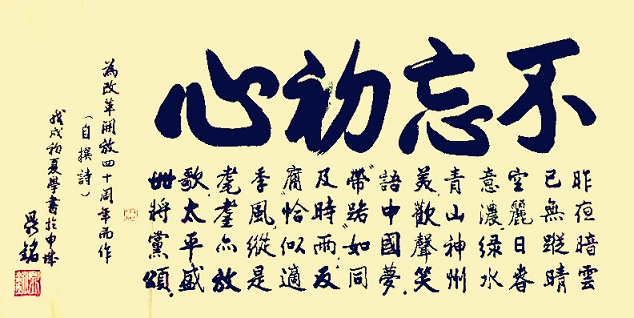 不忘初心
昨夜暗雲
已無蹤晴
空麗日春
意濃綠水
青山神州
美歡聲笑
語中國夢
“帶路”如同
及時雨反
腐恰似適
季風縱是
耄耋亦放
歌太平盛
世將黨頌
為改革開放四十周年而作
（自撰詩）
戊戌初夏學書於申城
銘